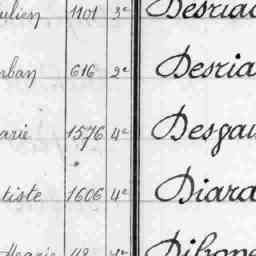 ulien 1101 3e Desriac
rban 616 2e Desria
arie 1576 4e Desgau
tiste 1606 4e Diara